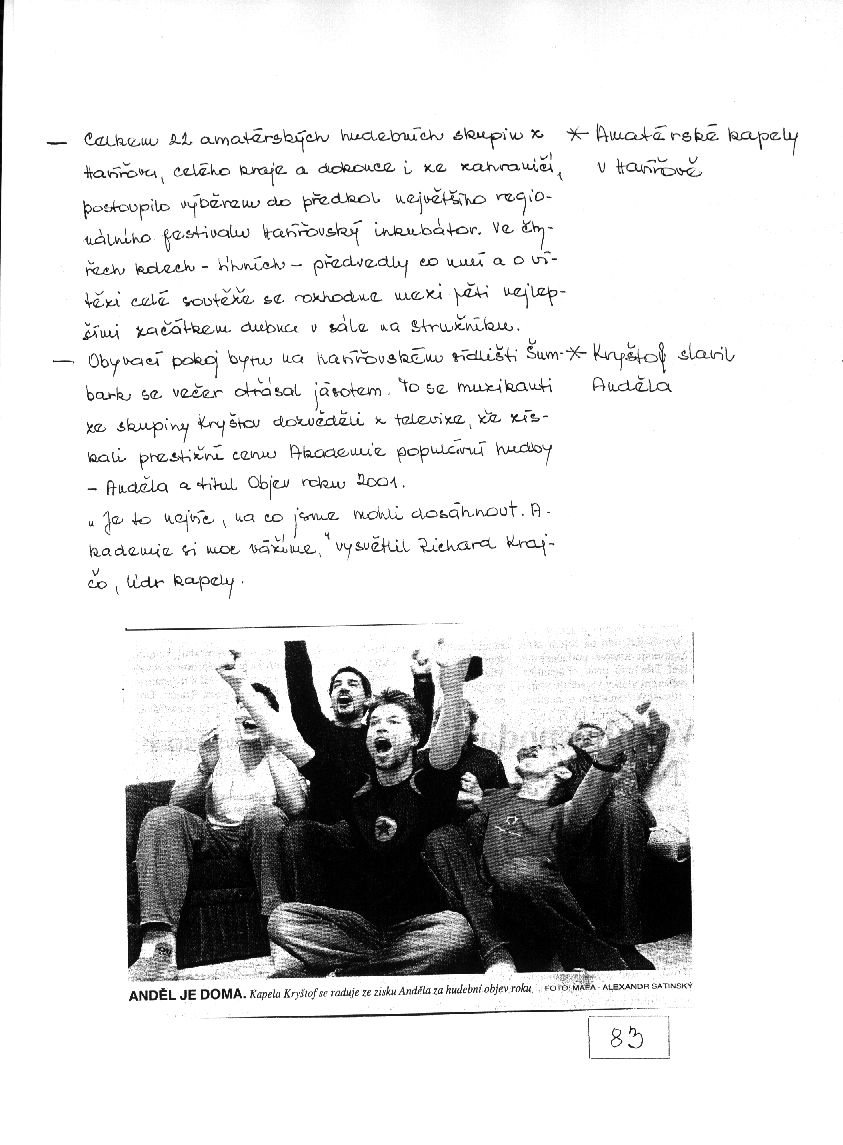 — Celkem 22 amatérských hudebních skupin z
Havířova, celého kraje a dokonce i ze zahraničí,
postoupilo výběrem do předkol největšího regio-
nálního festivalu Havířovský inkubátor. Ve čty-
řech kolech - - předvedly co umí a o ví-
tězi celé soutěže se rozhodne mezi pěti nejlep-
šími začátkem dubna v sále na Stružníku.
* Amatérské kapely
v Havířově
— Obývací pokoj bytu na havířovském sídlišti Šum-
bark se večer otřásal jásotem. To se muzikanti
ze skupiny Kryštov dozvěděli z televize, že zís-
kali prestižní cenu Akademie populární hudby
- Anděla a titul Objev roku 2001.
„Je to nejvíc, na co jsme mohli dosáhnout. A-
kademie si moc vážíme,“ vysvětlil Richard Kraj-
čo, lídr kapely.
* Kryštof slavil
Anděla
ANDĚL JE DOMA. Kapela Kryštof se raduje ze zisku Anděla za hudební objev roku. FOTO: MAFA - ALEXANDR SATINSKÝ
83